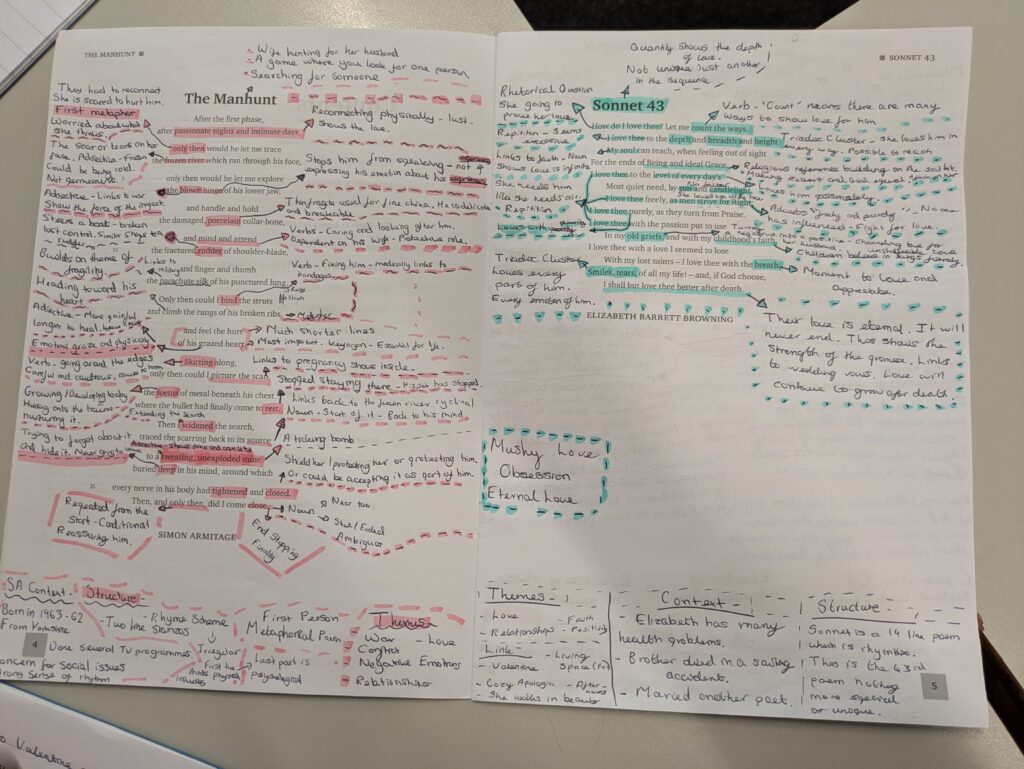 THE MANHUNT
- Wife hunting for her husband
- A game where you look for one person.
- Searching for someone
The Manhunt
After the first phase,
after passionate nights and intimate days,
only then would he let me trace
the frozen river which ran through his face,
only then would he let me explore
the blown hinge of his lower jaw,
and handle and hold
the damaged, porcelain collar-bone,
10
and mind and attend
the fractured rudder of shoulder-blade,
and finger and thumb
the parachute silk of his punctured lung.
Only then could I bind the struts
and climb the rungs of his broken ribs,
and feel the hurt
of his grazed heart.
Skirting along,
only then could I picture the scan,
the foetus of metal beneath his chest
where the bullet had finally come to rest.
Then I widened the search,
traced the scarring back to its source
to a sweating, unexploded mine
buried deep in his mind, around which
25
every nerve in his body had tightened and closed.
Then, and only then, did I come close.
SIMON ARMITAGE
They had to reconnect
She is scared to hurt him.
First metaphor
Worried about what
she thinks.
The scar or tears on his
face. Adjective - Frozen
Could be being cold.
Not permanent.
Adjective - Links to war
Show the force of the impact.
Steers a boat - broken
lost control. Similar shape to a
rudder
Builds on theme of
fragility.
Links to
military
Heading toward his
heart
Adjective - More painful
longer to heal.
Emotional graze and physically
Verb - going around the edges
Careful and cautious,
Growing / Developing baby
Husing onto the trauma -
nurturing it.
Extending the search
Trying to forget about it
and hide it. Never going to leave
Reconnecting physically - lust
shows the love.
Stops him from speaking - not
expressing his emotion about his
Thin fragile used for fine china. He is delicate
and breakable.
Verbs - Caring and looking after him.
Dependent on his wife - Protective role.
Verb - Fixing him - medically links to
bandages
Metaphor
Much shorter lines
Most important - key organ - Essential for life.
Links to pregnancy shows inside.
Stopped staying there - His job has stopped.
Links back to the frozen river cyclical
Noun - Start of it - Back to his mind.
A ticking bomb
Shielding her / protecting her or protecting him.
Or could be accepting it as part of him.
Repeated from the
start - Conditional
Reassuring him.
End Stopping
Finally
Noun
Near too
Shut / Ended
Ambiguous
SA Context.
Born in 1963 - 62
From Yorkshire
Done Several TV programmes
concern for Social issues
strong Sense of rhythm
Structure
- Two line Stanzas
- Rhyme Scheme
Irregular
First the
physical
injuries
First Person
Metaphorical Poem
Last part is
psychological
Themes
- War - Love
- Conflict
- Negative Emotions
- Relationships
4
SONNET 43
Quantity shows the depth
of love.
Not unique Just another
in the sequence
Sonnet 43
How do I love thee? Let me count the ways.
I love thee to the depth and breadth and height
My soul can reach, when feeling out of sight
For the ends of Being and ideal Grace.
I love thee to the level of every day's
Most quiet need, by sun and candlelight.
I love thee freely, as men strive for Right;
I love thee purely, as they turn from Praise.
I love thee with the passion put to use
In my old griefs, and with my childhood's faith.
I love thee with a love I seemed to lose
With my lost saints – I love thee with the breath,
Smiles, tears, of all my life! – and, if God choose,
I shall but love thee better after death.
ELIZABETH BARRETT BROWNING
Rhetorical Question
She going to
prove her love.
Repetition - Seems
excessive
Links to faith - Noun
Shows love is infinite
She needs him
like she needs air
- Repetition
Loves with purity
Triadic Cluster
Loves every
part of him.
Every emotion of him.
Verb - 'Count' means there are many
ways to show love for him
Triadic Cluster - She loves him in
every way. Possible to reach
Religious reference
Loves him passionately.
Adverbs 'freely and purely'
influenced - Fight for love.
Children believe in things
Moment to love and
appreciate.
Their love is eternal. It will
never end. This shows the
Strength of the promise. Links
to wedding vows. Love will
continue to grow after death.
Mushy Love
Obsession
Eternal Love
Themes
- Love - Faith
- Relationships - Positivity
Links
- Valentine - Living
Space
- Cozy Apologia - Afternoons
- She walks in beauty
Context
- Elizabeth has many
health problems.
- Brother died in a sailing
accident.
- Married another poet.
Structure
Sonnet is a 14 line poem
which is rhymtise.
This is the 43rd
poem nothing
more special
or unique.
5
Valentine